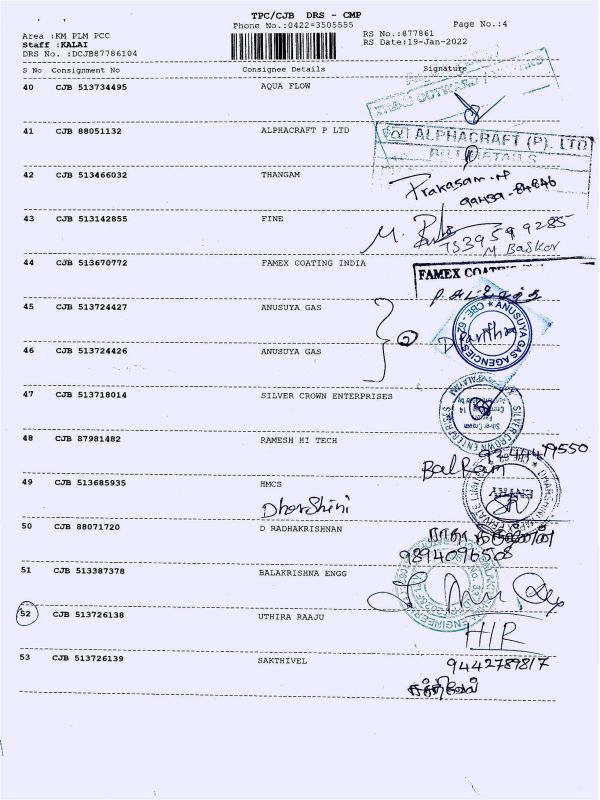 TPC/CJB DRS - CMP
Phone No.:0422=3505555
Page No.:4
Area :KM PLM PCC
RS No.:877861
Staff :KALAI
RS Date:19-Jan-2022
DRS No. :DCJB87786104
S No Consignment No Consignee Details Signature
40 CJB 513734495 AQUA FLOW
41 CJB 88051132 ALPHACRAFT P LTD
ALPHACRAFT (P). LTD
42 CJB 513466032 THANGAM
Prakasam.N
99439-84846
43 CJB 513142855 FINE
7539599285
M Baskor
44 CJB 513670772 FAMEX COATING INDIA
FAMEX
45 CJB 513724427 ANUSUYA GAS
ANUSUYA GAS AGENCIES
46 CJB 513724426 ANUSUYA GAS
2
47 CJB 513718014 SILVER CROWN ENTERPRISES
SILVER CROWN ENTERPRISES
48 CJB 87981482 RAMESH HI TECH
BalRam
49 CJB 513685935 HMCS
ENTRY
DharShini
50 CJB 88071720 D RADHAKRISHNAN
9894096508
51 CJB 513387378 BALAKRISHNA ENGG
52 CJB 513726138 UTHIRA RAAJU
H/R
53 CJB 513726139 SAKTHIVEL
9442789817
சக்திவேல்